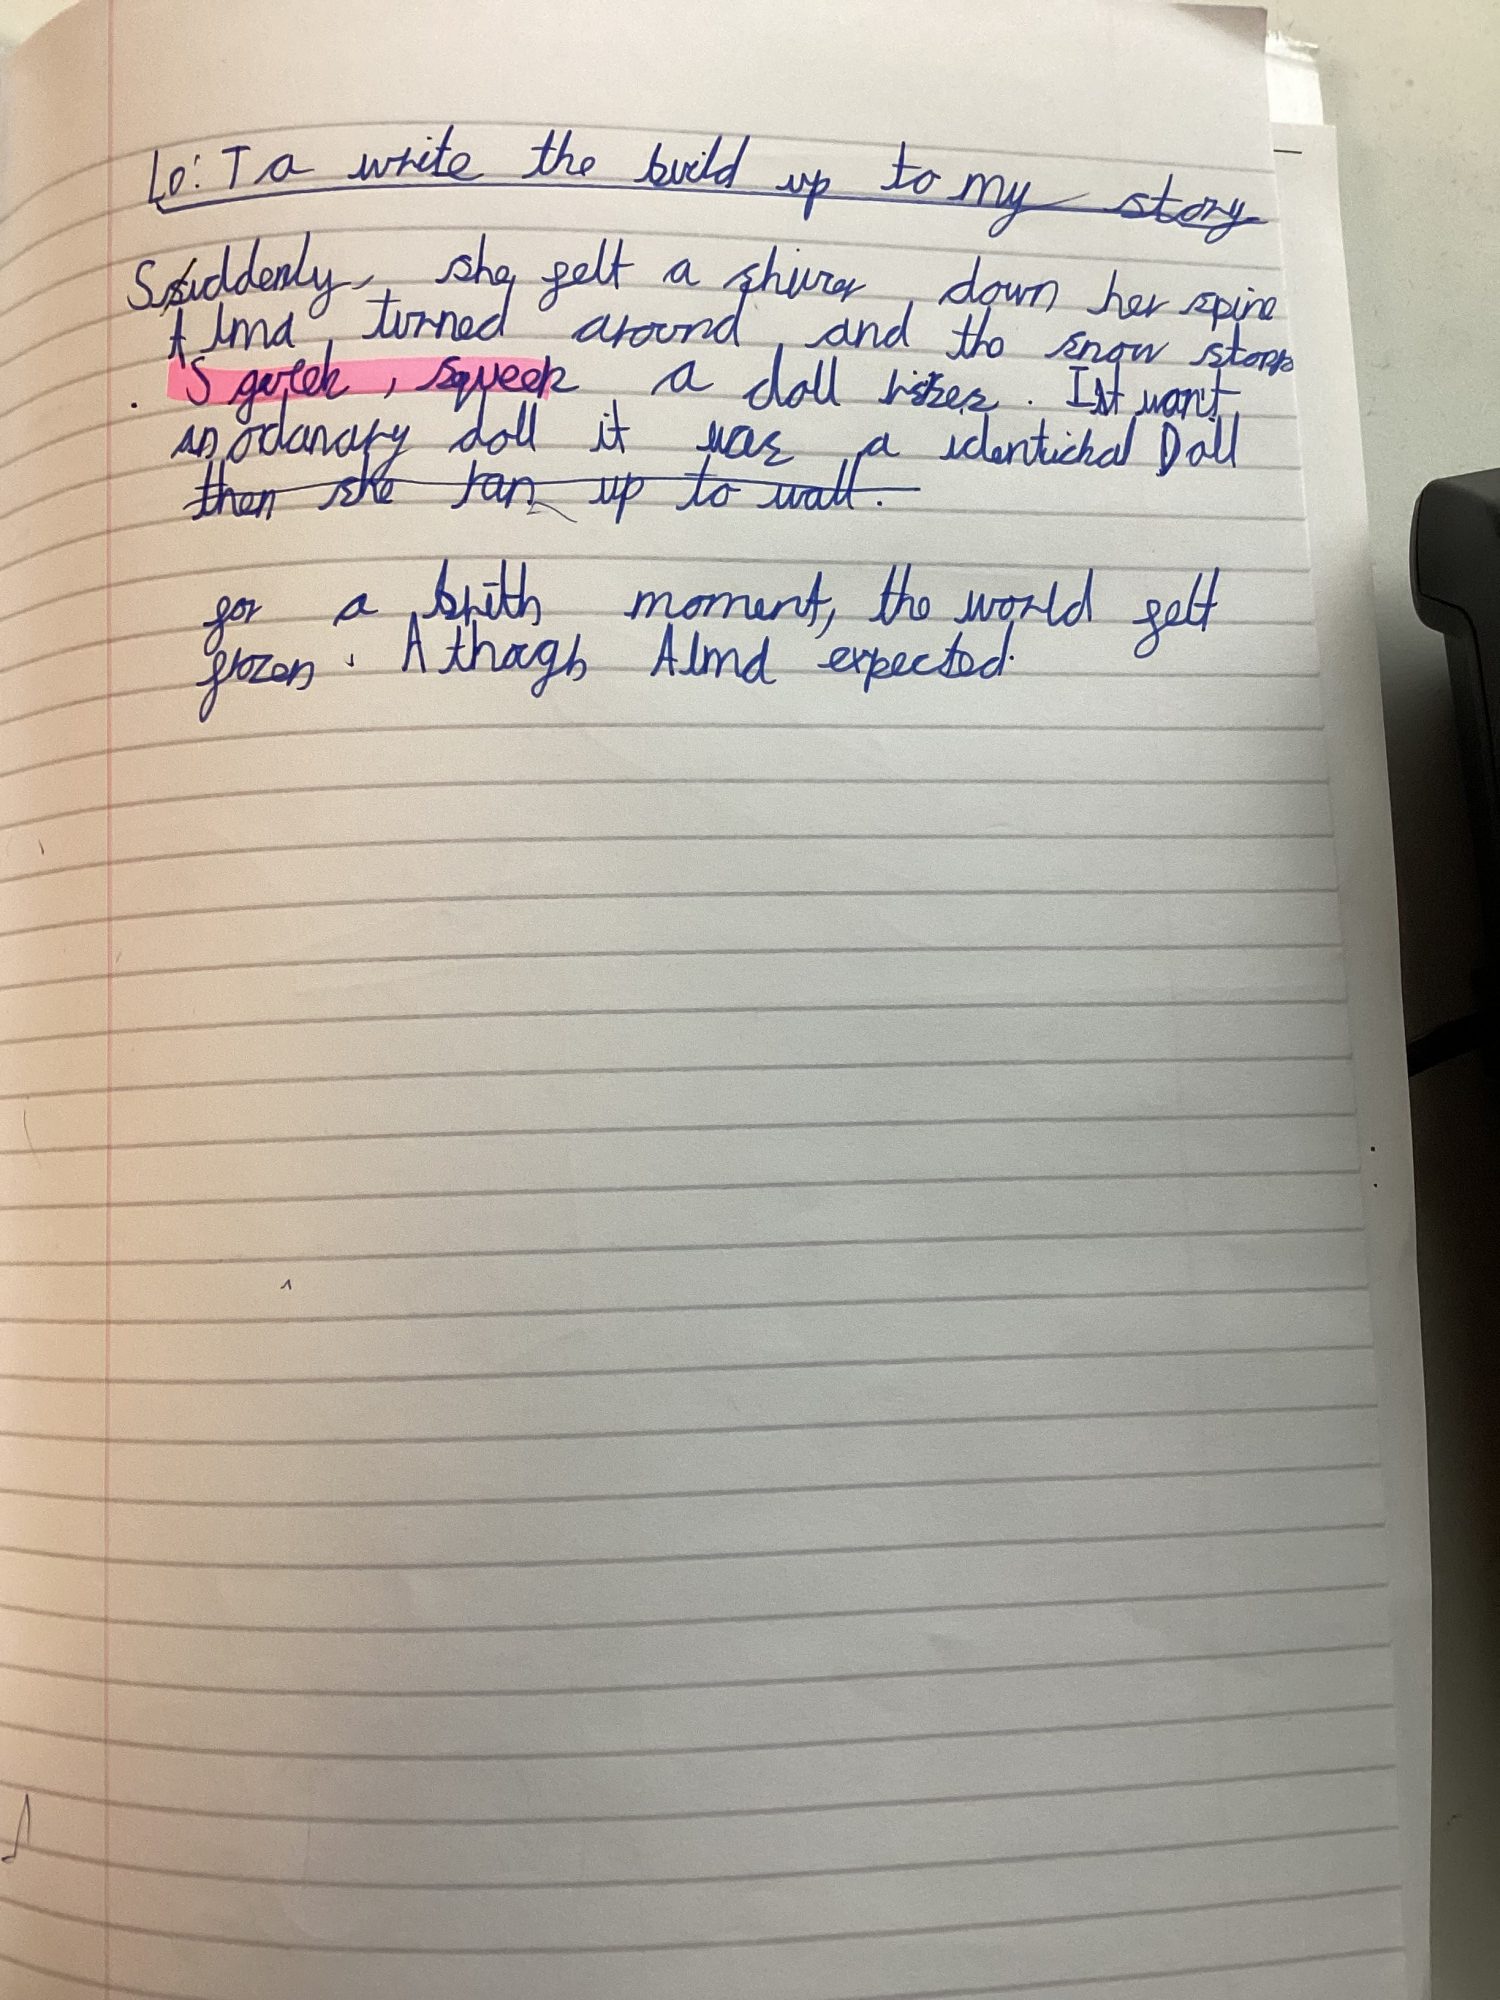 Lo: To write the build up to my story
Suddenly, she felt a shiver down her spine
Alma turned around and the snow stopp
. Squeek, squeek a doll rises. It want
an ordanary doll it was a identichal Doll
then she ran up to wall.
for a brith moment, the world felt
frozen. Athogh Alma expected.